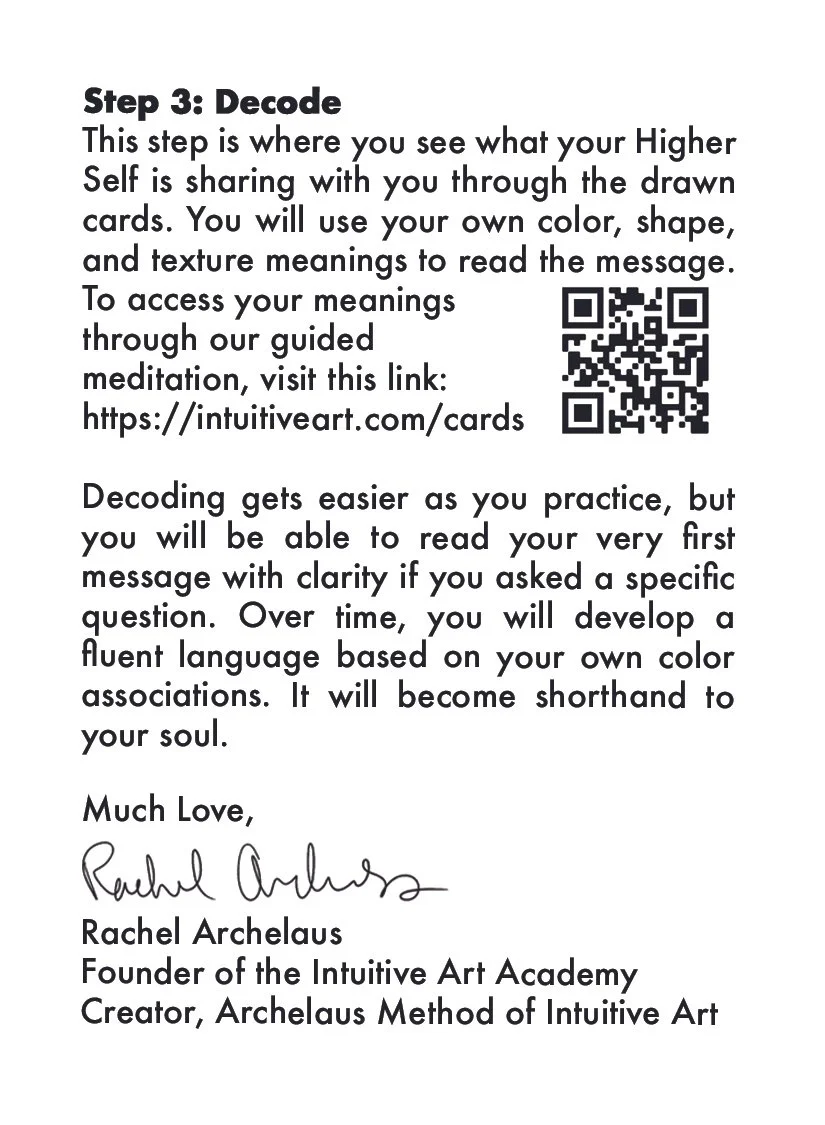 Step 3: Decode
This step is where you see what your Higher
Self is sharing with you through the drawn
cards. You will use your own color, shape,
and texture meanings to read the message.
To access your meanings
through our guided
meditation, visit this link:
https://intuitiveart.com/cards
Decoding gets easier as you practice, but
you will be able to read your very first
message with clarity if you asked a specific
question. Over time, you will develop a
fluent language based on your own color
associations. It will become shorthand to
your soul.
Much Love,
Rachel Archelaus
Rachel Archelaus
Founder of the Intuitive Art Academy
Creator, Archelaus Method of Intuitive Art